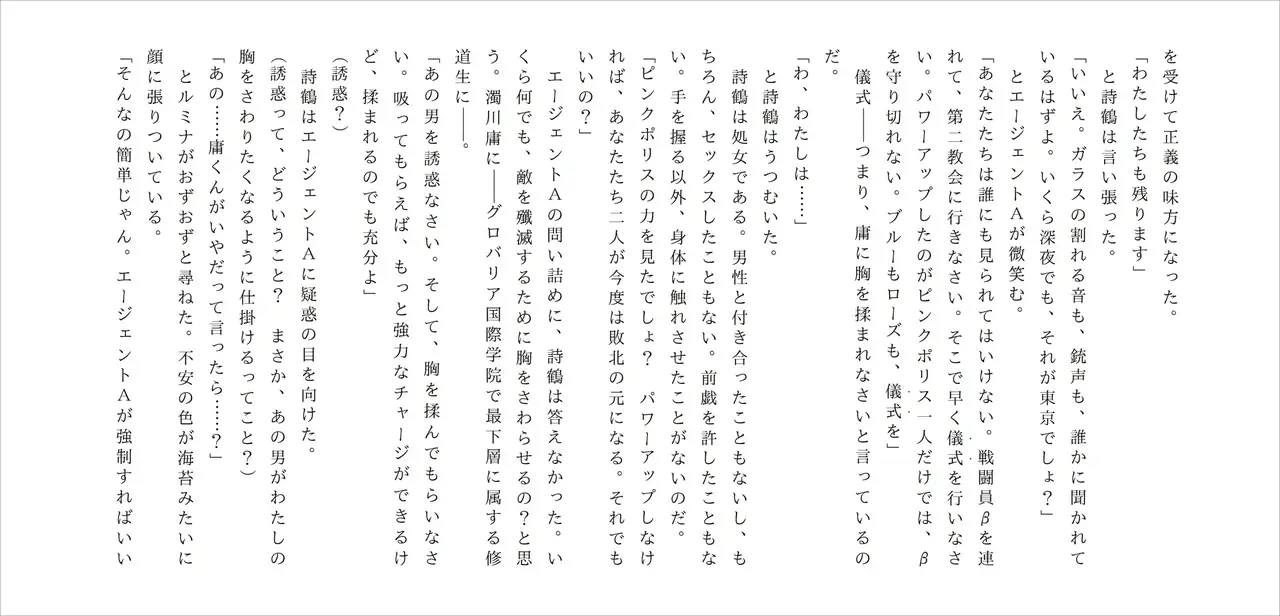 を受けて正義の味方になった。
「わたしたちも残ります」
と詩鶴は言い張った。
「いいえ。ガラスの割れる音も、銃声も、誰かに聞かれて
いるはずよ。いくら深夜でも、それが東京でしょ？」
とエージェントＡが微笑む。
「あなたたちは誰にも見られてはいけない。戦闘員βを連
れて、第二教会に行きなさい。そこで早く儀式を行いなさ
い。パワーアップしたのがピンクポリス一人だけでは、β
を守り切れない。ブルーもローズも、儀式を」
儀式――つまり、庸に胸を揉まれなさいと言っているの
だ。
「わ、わたしは……」
と詩鶴はうつむいた。
詩鶴は処女である。男性と付き合ったこともないし、も
ちろん、セックスしたこともない。前戯を許したこともな
い。手を握る以外、身体に触れさせたことがないのだ。
「ピンクポリスの力を見たでしょ？　パワーアップしなけ
れば、あなたたち二人が今度は敗北の元になる。それでも
いいの？」
エージェントＡの問い詰めに、詩鶴は答えなかった。い
くら何でも、敵を殲滅するために胸をさわらせるの？と思
う。濁川庸に――グロバリア国際学院で最下層に属する修
道生に――。
「あの男を誘惑なさい。そして、胸を揉んでもらいなさ
い。吸ってもらえば、もっと強力なチャージができるけ
ど、揉まれるのでも充分よ」
（誘惑？）
詩鶴はエージェントＡに疑惑の目を向けた。
（誘惑って、どういうこと？　まさか、あの男がわたしの
胸をさわりたくなるように仕掛けるってこと？）
「あの……庸くんがいやだって言ったら……？」
とルミナがおずおずと尋ねた。不安の色が海苔みたいに
顔に張りついている。
「そんなの簡単じゃん。エージェントＡが強制すればいい